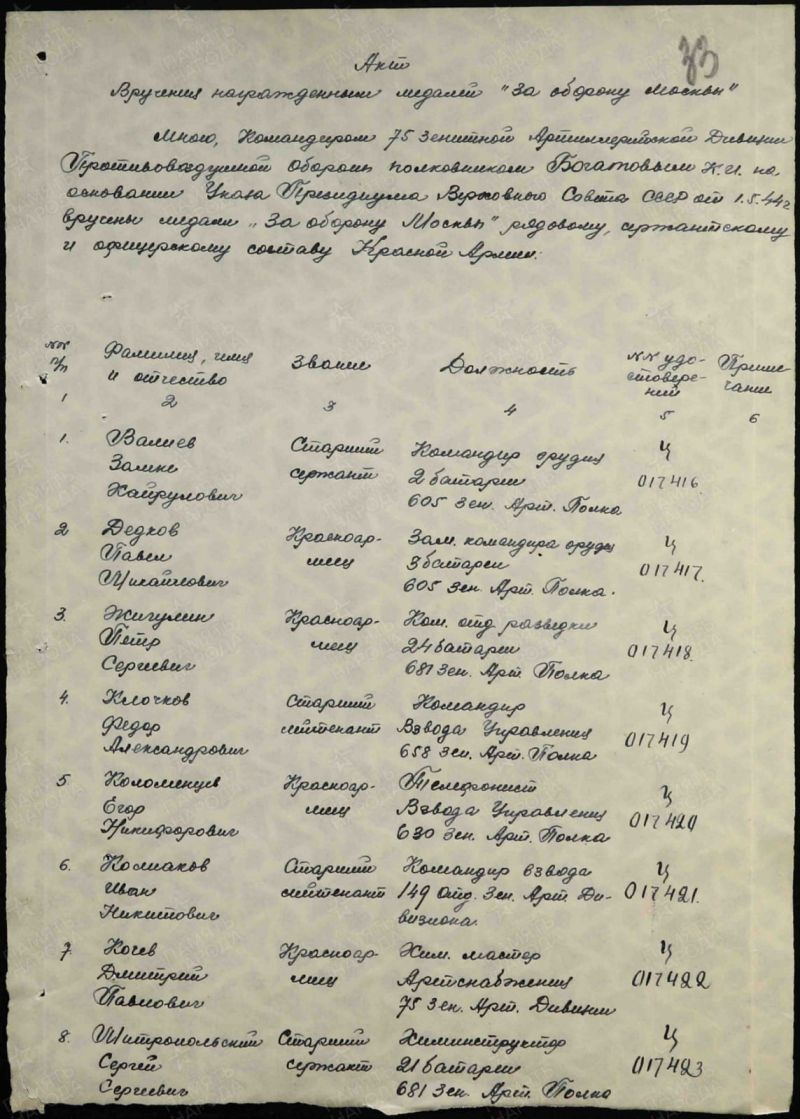 33
Акт
Вручения награжденным медалей "За оборону Москвы"
Мною, Командиром 75 Зенитной Артиллерийской Дивизии
Противовоздушной Обороны полковником Богатовым К.И. на
основании Указа Президиума Верховного Совета СССР от 1.5.44г
вручены медали "За оборону Москвы" рядовому, сержантскому
и офицерскому составу Красной Армии.
NN п/п Фамилия, имя и отчество Звание Должность NN удостоверений Примечание
1 2 3 4 5 6
1. Валиев Старший Командир орудия Ц
сержант 2 батареи 017416
Хайрулович 605 Зен. Арт. Полка
2 Дедков Красноар- Зам. командира орудия Ц
Павел мец 3 батареи 017417.
Михайлович 605 Зен. Арт. Полка.
3. Жигулин Красноар- Ком. отд разведки Ц
Петр мец 24 батареи 017418.
Сергеевич 681 Зен. Арт. Полка
4. Клочков Старший Командир Ц
Федор лейтенант Взвода Управления 017419
Александрович 658 Зен. Арт. Полка
5 Коломенцев Красноар- Телефонист Ц
Егор мец Взвода Управления 017420
Никифорович 630 Зен. Арт. Полка
6. Колмаков Старший Командир взвода Ц
Иван лейтенант 149 Отд. Зен. Арт Ди- 017421.
Никитович визиона.
7. Кочев Красноар- Хим. мастер Ц
Дмитрий мец Артснабжения 017422
Павлович 75 Зен. Арт. Дивизии
8. Митропольский Старший Химинструктор Ц
Сергей сержант 21 батареи 017423
Сергеевич 681 Зен. Арт. Полка